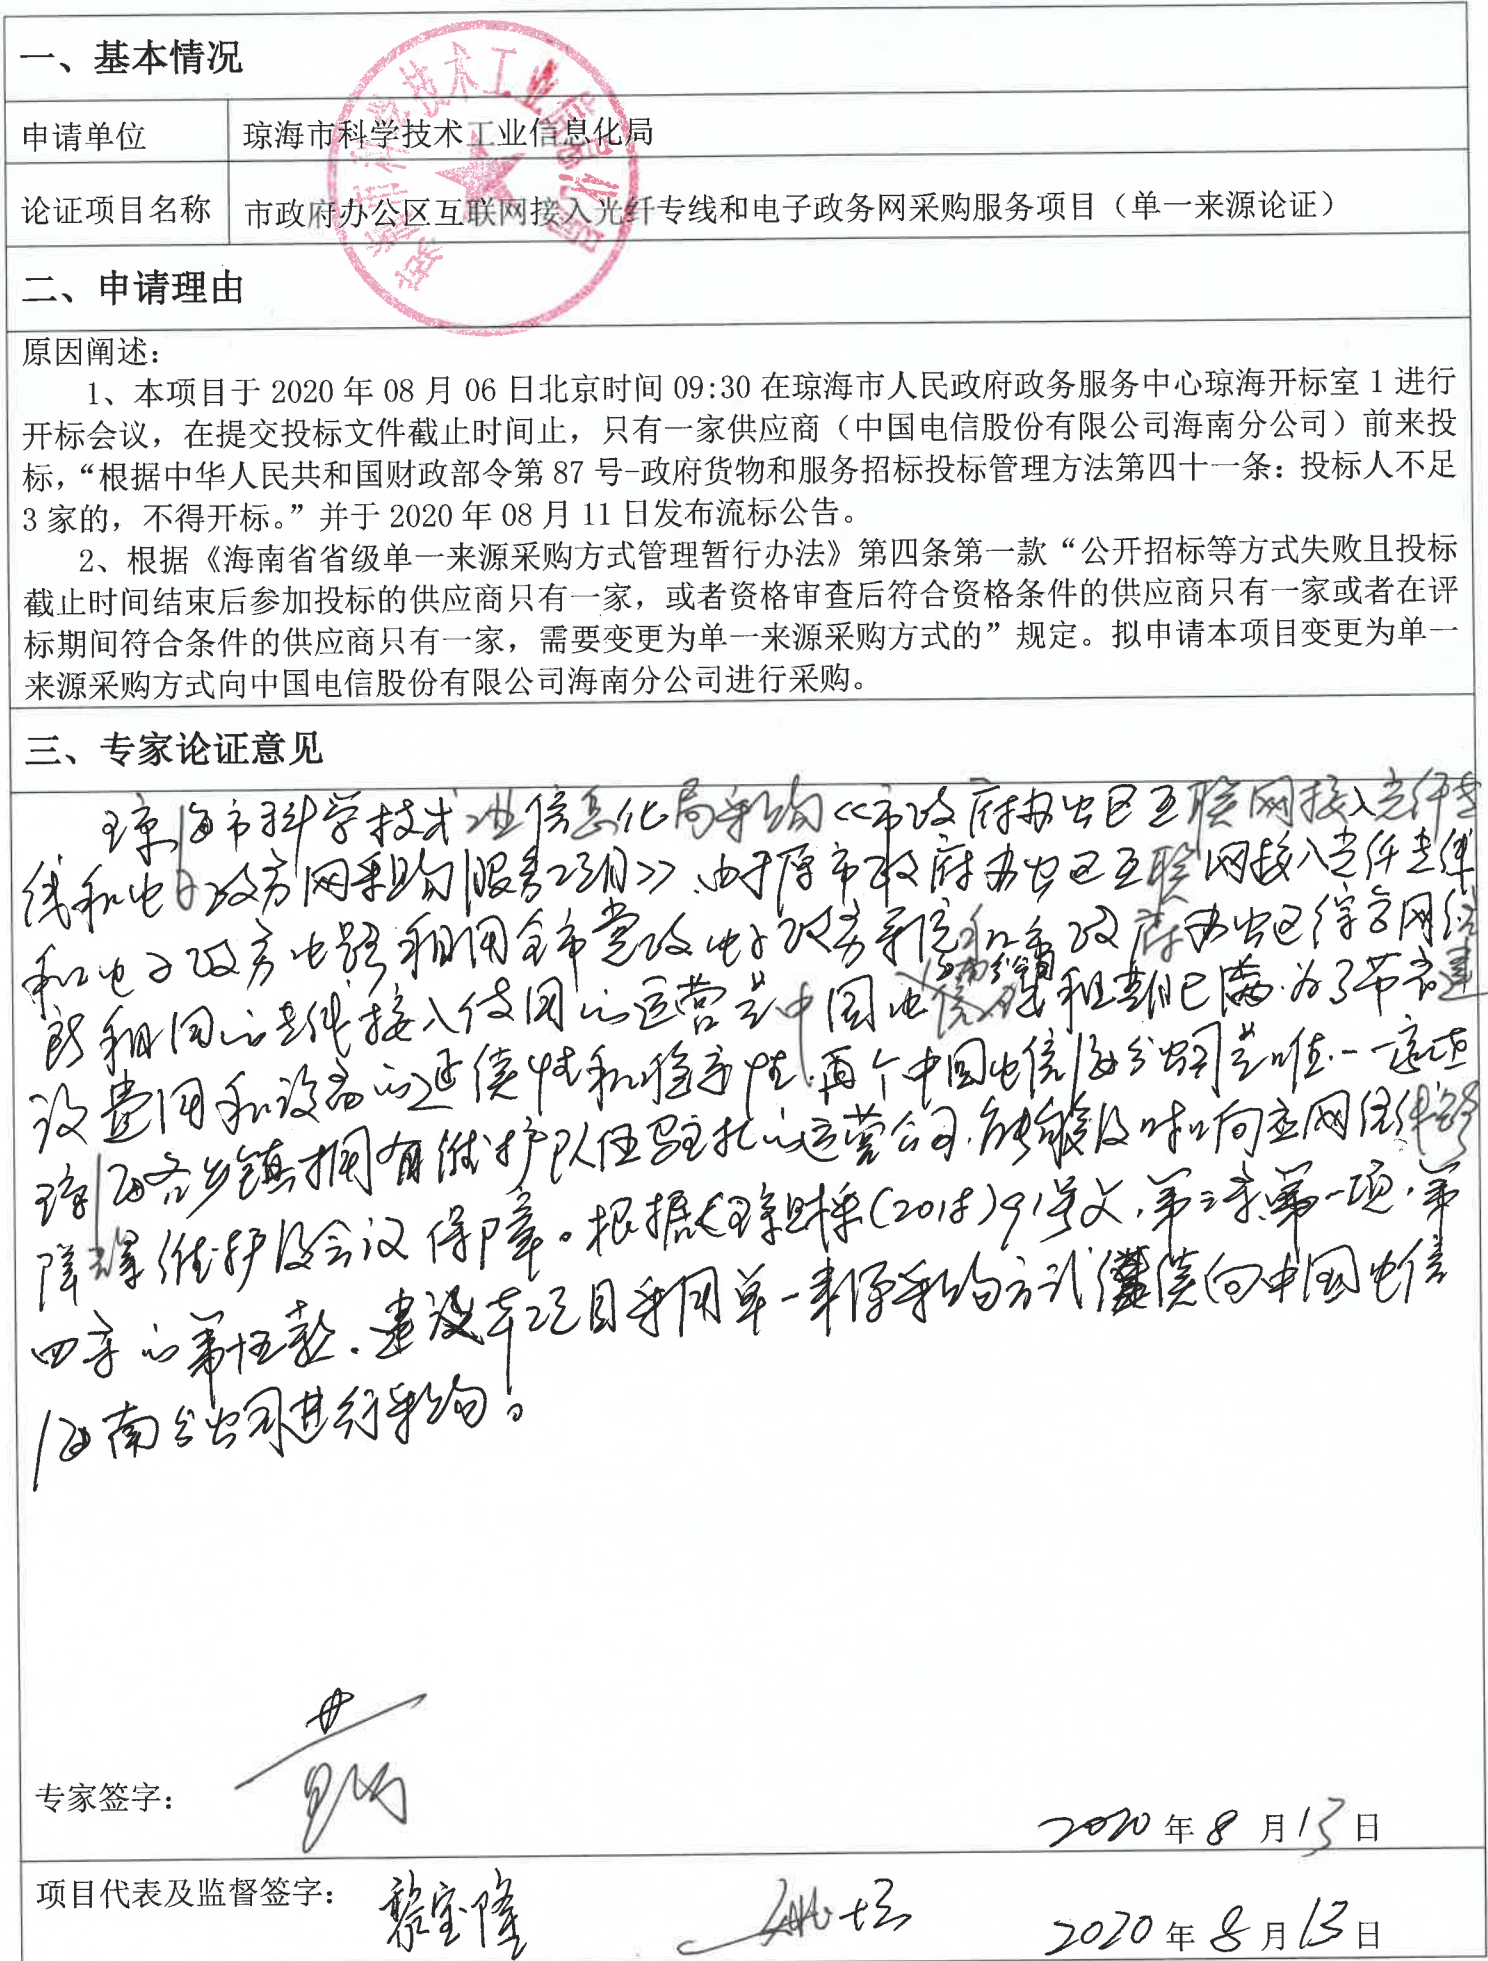 一、基本情况
申请单位
琼海市科学技术工业信息化局
论证项目名称
市政府办公区互联网接入光纤专线和电子政务网采购服务项目（单一来源论证）
琼海市科学技术工业信息化局
二、申请理由
原因阐述：
1、本项目于 2020 年 08 月 06 日北京时间 09:30 在琼海市人民政府政务服务中心琼海开标室 1 进行
开标会议，在提交投标文件截止时间止，只有一家供应商（中国电信股份有限公司海南分公司）前来投
标，“根据中华人民共和国财政部令第 87 号-政府货物和服务招标投标管理方法第四十一条：投标人不足
3 家的，不得开标。”并于 2020 年 08 月 11 日发布流标公告。
2、根据《海南省省级单一来源采购方式管理暂行办法》第四条第一款“公开招标等方式失败且投标
截止时间结束后参加投标的供应商只有一家，或者资格审查后符合资格条件的供应商只有一家或者在评
标期间符合条件的供应商只有一家，需要变更为单一来源采购方式的”规定。拟申请本项目变更为单一
来源采购方式向中国电信股份有限公司海南分公司进行采购。
三、专家论证意见
琼海市科学技术工业信息化局采购《市政府办公区互联网接入光纤专
线和电子政务网采购服务项目》，由于原市政府办公区互联网接入光纤专线
和电子政务电路租用全市党政电子政务系统和市政府办公区综合网络
所租用的专线接入使用的运营是中国电信海南分公司租期已满，为了节省建
设费用和设备的延续性和稳定性，再个中国电信海分公司是唯一一家在
琼海各乡镇拥有维护队伍驻扎的运营公司，能够及时响应网络线路
障碍维护及会议保障。根据《琼财采(2018)91号文，第三章第一项，第
四章的第十五款，建议本项目采用单一来源采购方式继续向中国电信
海南分公司进行采购。
专家签字：
2020 年 8 月 13 日
项目代表及监督签字：
黎宝隆
2020 年 8 月 13 日